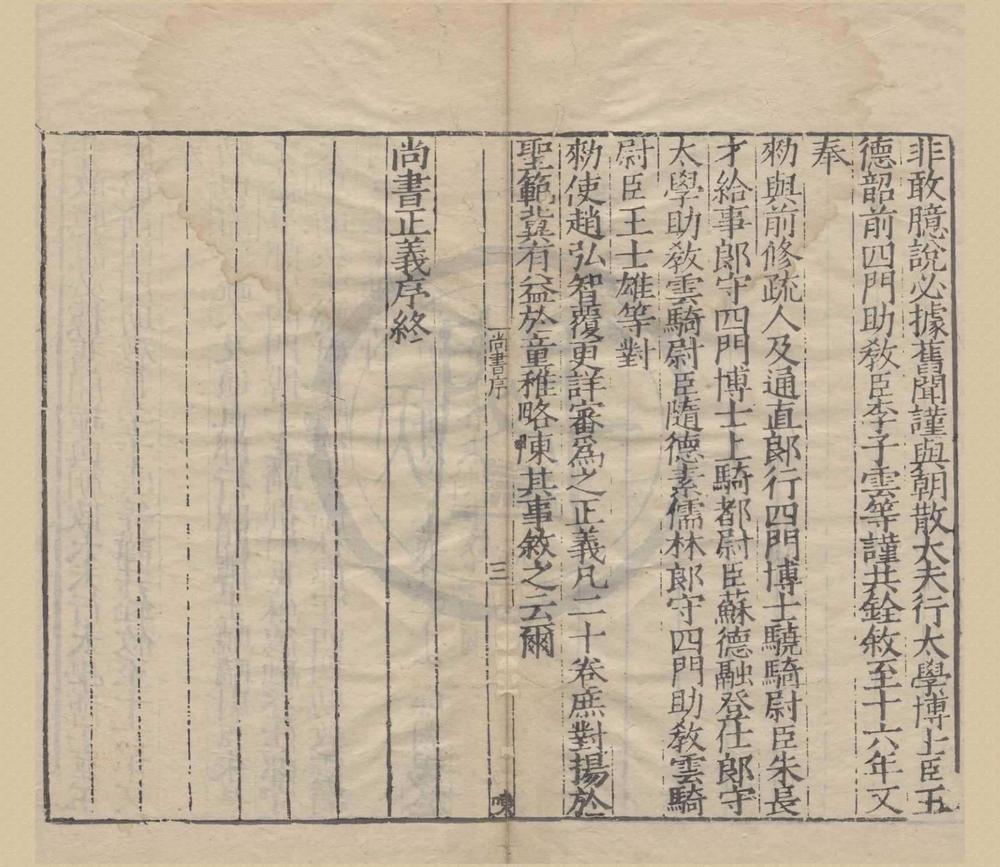 非敢臆說必據舊聞謹與朝散大夫行太學博士臣王
德韶前四門助教臣李子雲等謹共銓敘至十六年又
奉
勑與前修疏人及通直郎行四門博士驍騎尉臣朱長
才給事郎守四門博士上騎都尉臣蘇德融登仕郎守
太學助教雲騎尉臣隨德素儒林郎守四門助教雲騎
尉臣王士雄等對
勑使趙弘智覆更詳審爲之正義凡二十卷庶對揚於
聖範冀有益於童稚略陳其事敘之云爾
尚書序
三
尚書正義序終